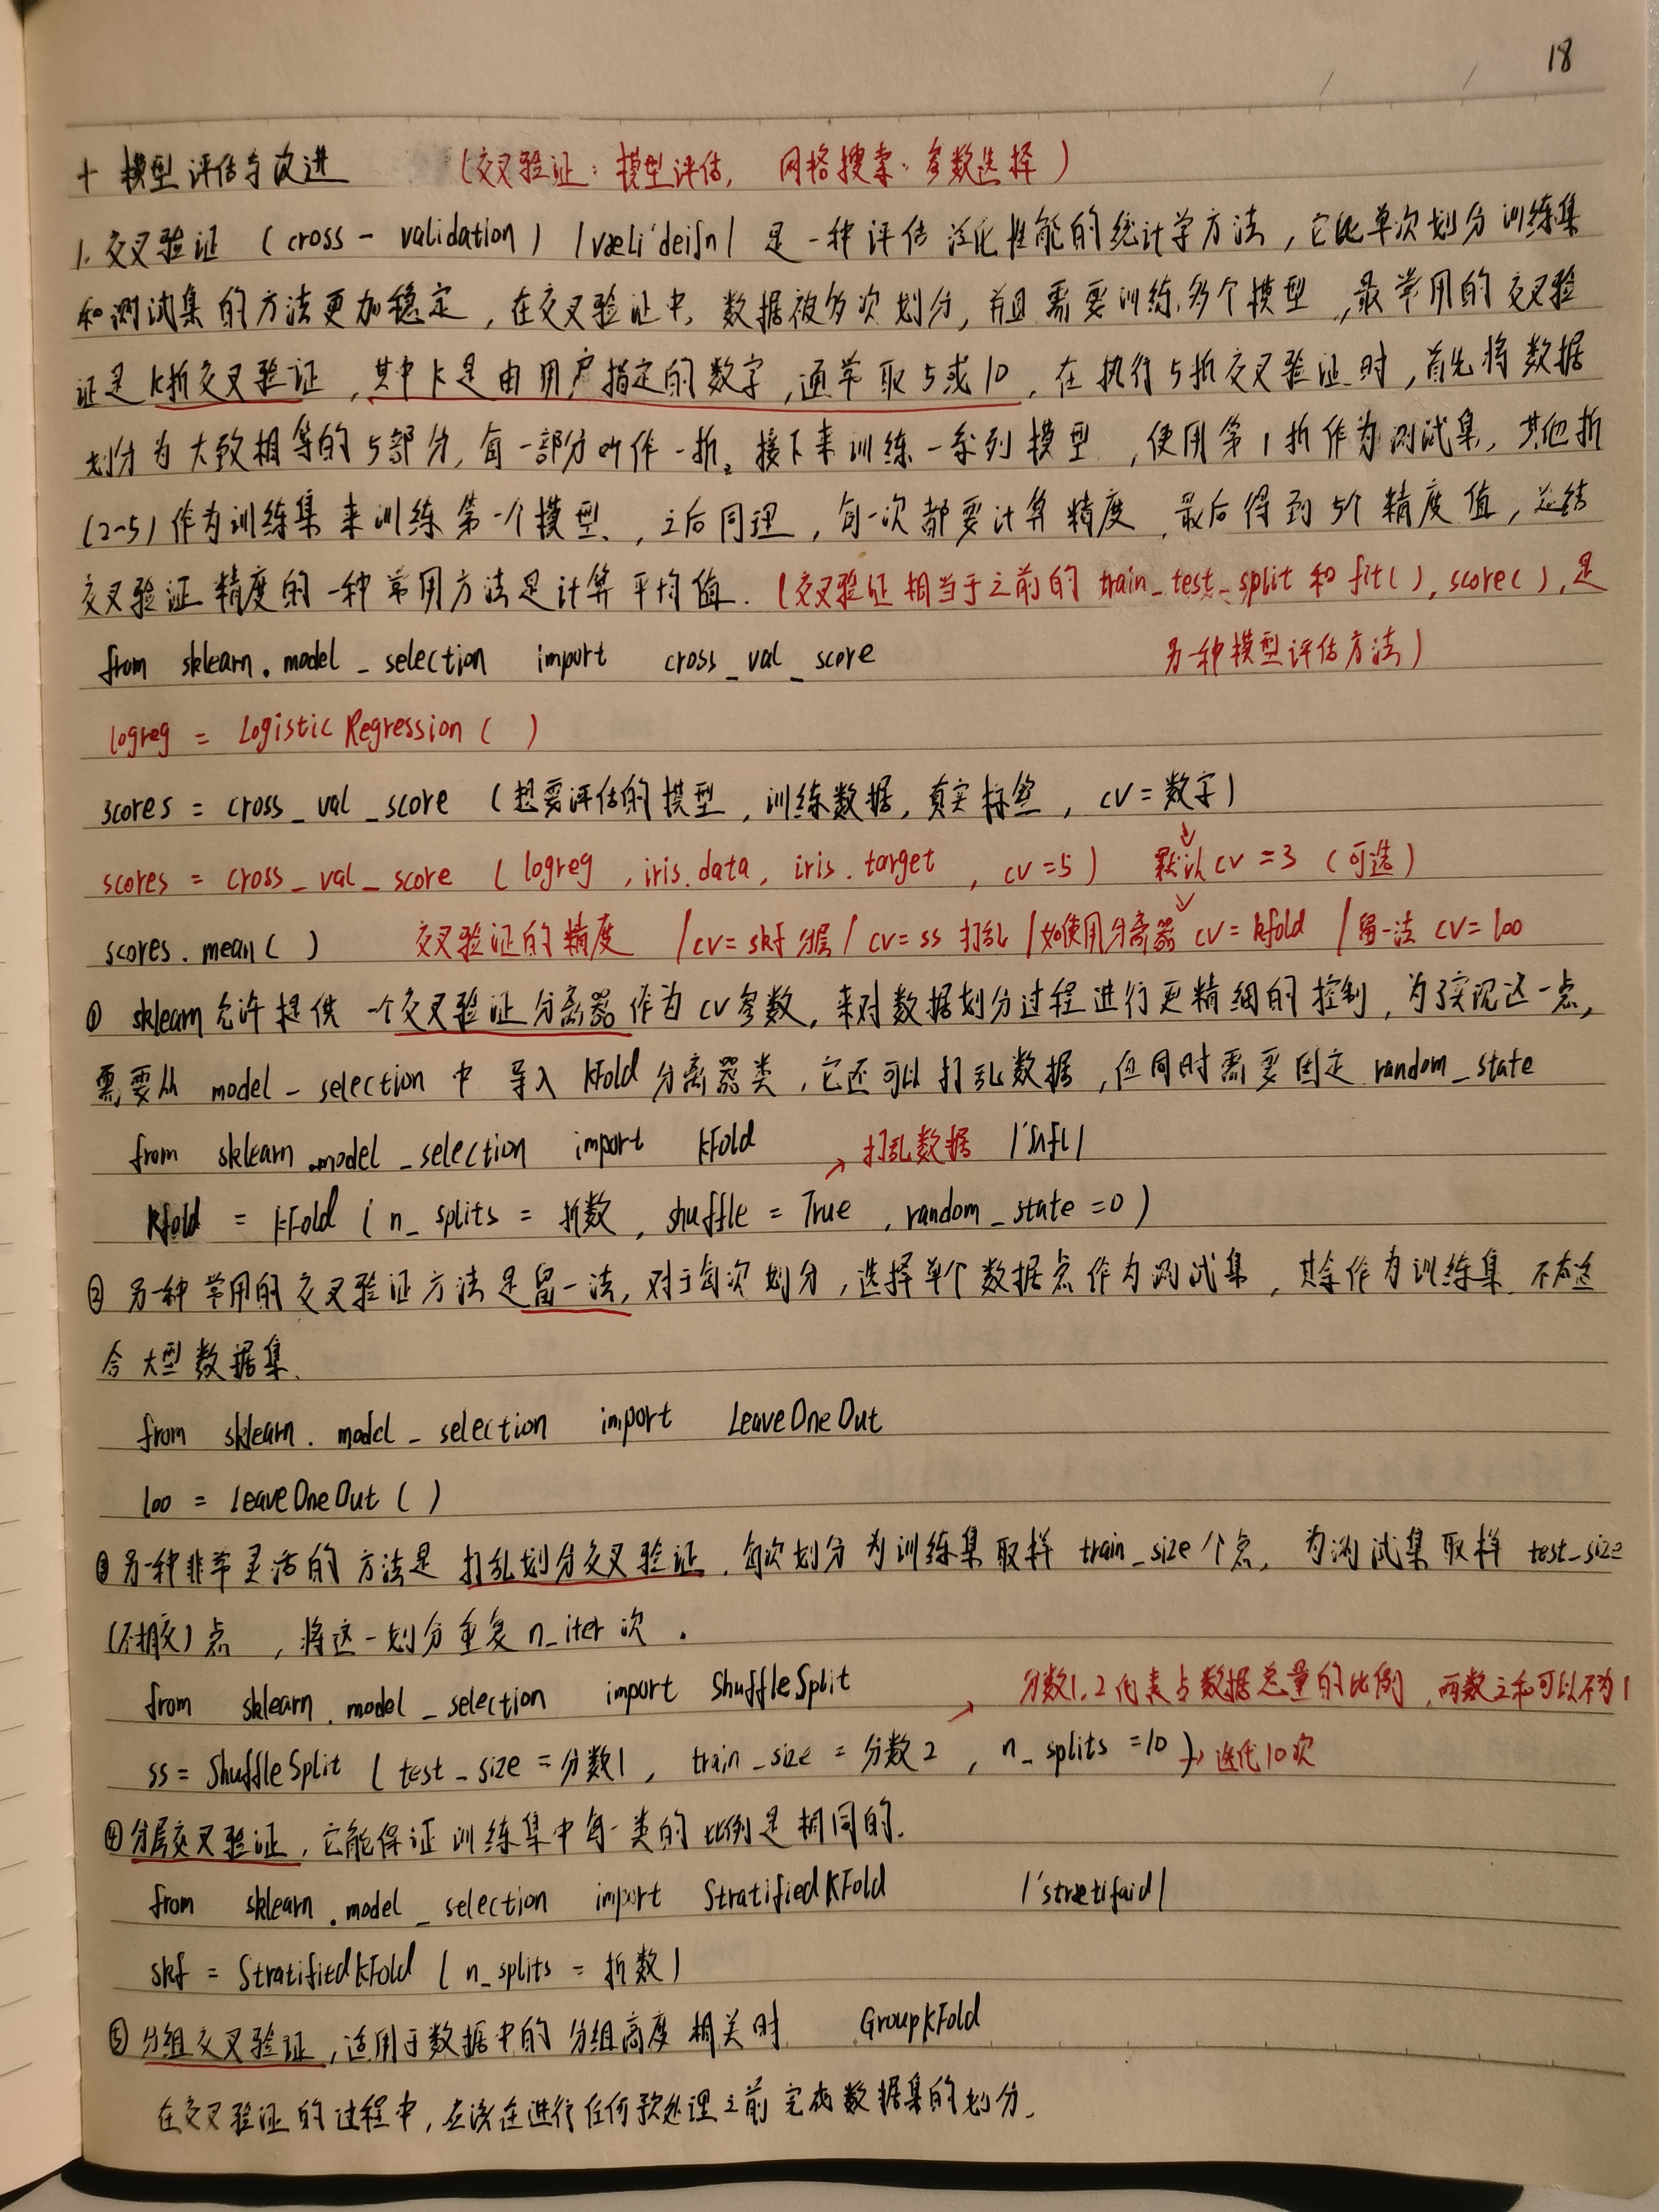 18
十 模型评估与改进 (交叉验证:模型评估, 网格搜索:参数选择)
1. 交叉验证 (cross-validation) /væli'deiʃn/ 是一种评估泛化性能的统计学方法,它比单次划分训练集
和测试集的方法更加稳定,在交叉验证中,数据被多次划分,并且需要训练多个模型,最常用的交叉验
证是k折交叉验证,其中k是由用户指定的数字,通常取5或10,在执行5折交叉验证时,首先将数据
划分为大致相等的5部分,每一部分叫作一折。接下来训练一系列模型,使用第1折作为测试集,其他折
(2~5)作为训练集来训练第一个模型,之后同理,每一次都要计算精度,最后得到5个精度值,总结
交叉验证精度的一种常用方法是计算平均值.(交叉验证相当于之前的 train_test_split 和 fit(), score(),是
from sklearn.model_selection import cross_val_score 另一种模型评估方法)
logreg = LogisticRegression( )
scores = cross_val_score (想要评估的模型,训练数据,真实标签, cv=数字)
scores = cross_val_score (logreg, iris.data, iris.target, cv=5) 默认cv=3 (可选)
scores.mean( ) 交叉验证的精度 /cv=skf 分层/ cv=ss 打乱 /如使用分离器 cv=kfold /留一法 cv=loo
① sklearn允许提供一个交叉验证分离器作为cv参数,来对数据划分过程进行更精细的控制,为了实现这一点,
需要从 model_selection 中 导入 KFold 分离器类,它还可以打乱数据,但同时需要固定 random_state
from sklearn.model_selection import KFold → 打乱数据 /'ʃʌfl/
kfold = KFold (n_splits = 折数, shuffle = True, random_state=0)
② 另一种常用的交叉验证方法是留一法,对于每次划分,选择单个数据点作为测试集,其余作为训练集.不太适
合大型数据集.
from sklearn.model_selection import LeaveOneOut
loo = LeaveOneOut ( )
③ 另一种非常灵活的方法是 打乱划分交叉验证.每次划分为训练集取样 train_size个点,为测试集取样 test_size
(不相交)点,将这一划分重复 n_iter 次.
from sklearn.model_selection import ShuffleSplit → 分数1,2代表占数据总量的比例,两数之和可以不为1
ss = ShuffleSplit (test_size = 分数1, train_size = 分数2, n_splits =10) → 迭代10次
④ 分层交叉验证,它能保证训练集中每一类的比例是相同的.
from sklearn.model_selection import StratifiedKFold /'strætifaid/
skf = StratifiedKFold (n_splits = 折数)
⑤ 分组交叉验证,适用于数据中的分组高度相关时 GroupKFold
在交叉验证的过程中,应该在进行任何预处理之前完成数据集的划分.